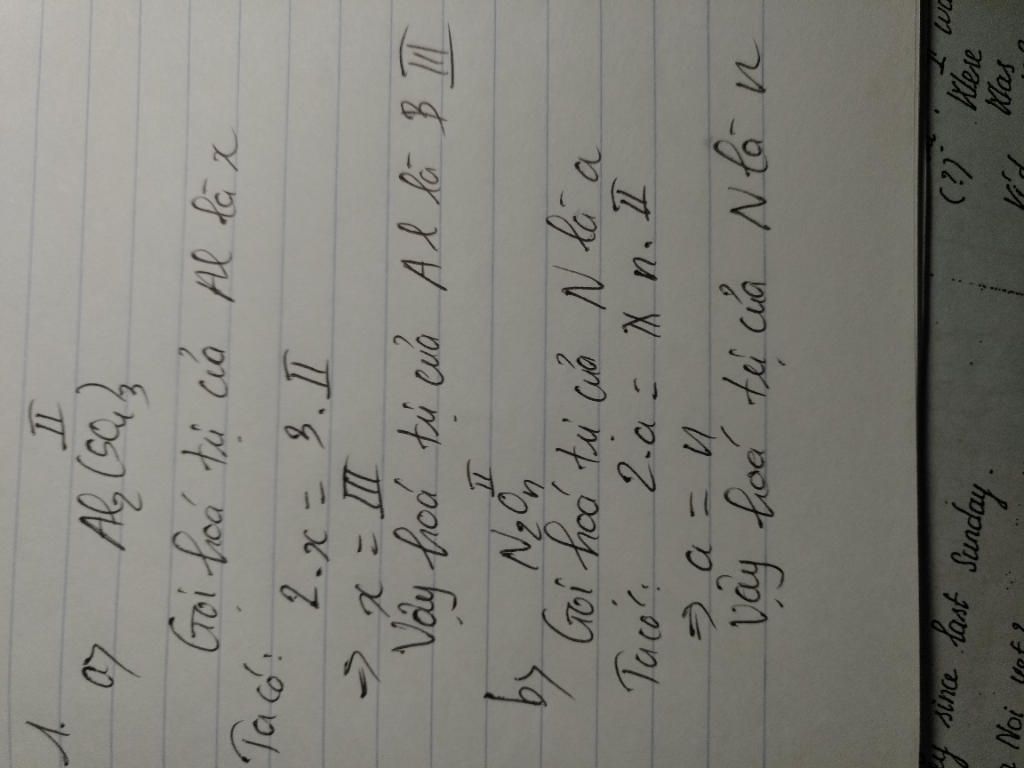 1.
II
a) Al2(SO4)3
Gọi hoá trị của Al là x
Ta có:
2.x = 3.II
=> x = III
Vậy hoá trị của Al là III
II
b) N2On
Gọi hoá trị của N là a
Ta có: 2.a = n.II
=> a = n
Vậy hoá trị của N là n
y since last Sunday.
Noi yet?
(?)
I wa
Here